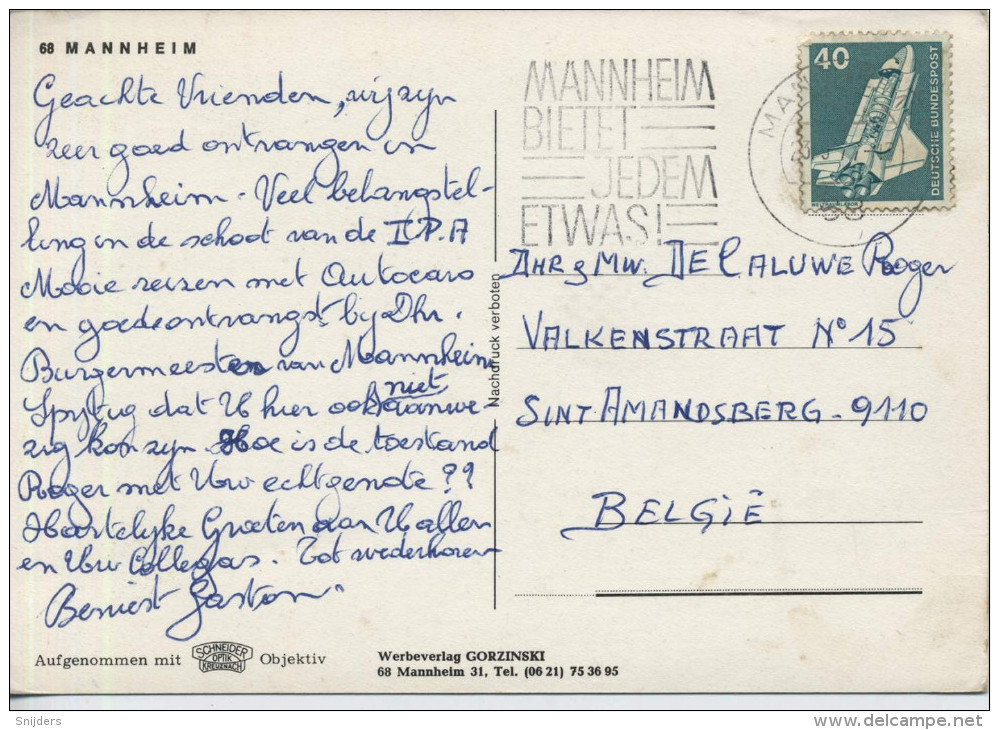 68 MANNHEIM
Geachte Vrienden, wij zyn
zeer goed ontvangen in
Mannheim. Veel belangstel-
ling in de schoot van de I.P.A
Mooie reizen met Autocars
en goede ontvangst bij Dhr.
Burgermeester van Mannheim
niet
Spytig dat U hier ook aanwe-
zig kon zyn. Hoe is de toestand
Roger met Uw echtgenote??
Hartelyke Groeten aan U allen
en Uw Collegas. Tot wederhoren
Beniest Gaston
Aufgenommen mit SCHNEIDER OPTIK KREUZNACH Objektiv
Nachdruck verboten
Werbeverlag GORZINSKI
68 Mannheim 31, Tel. (06 21) 75 36 95
MANNHEIM
BIETET
JEDEM
ETWAS!
40
DEUTSCHE BUNDESPOST
DHR & MW. DE CALUWE Roger
VALKENSTRAAT N° 15
SINT AMANDSBERG - 9110
BELGIË
Snijders
delcampe.net